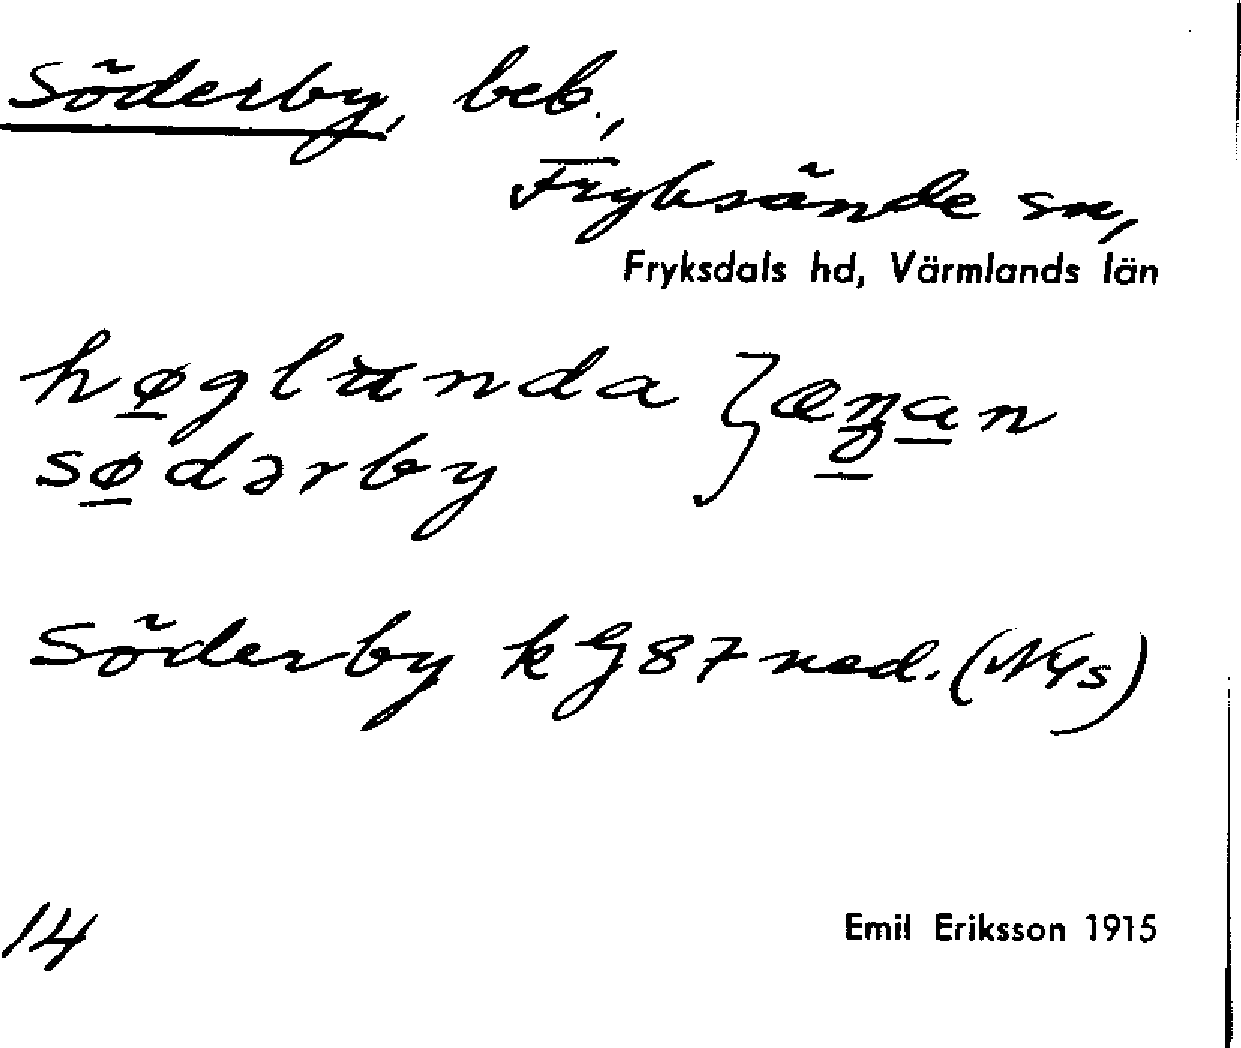 Söderby, beb.,
Fryksände sn,
Fryksdals hd, Värmlands län
høglunda
sødərby
Söderby kg 87 ned. (NYs)
14
Emil Eriksson 1915